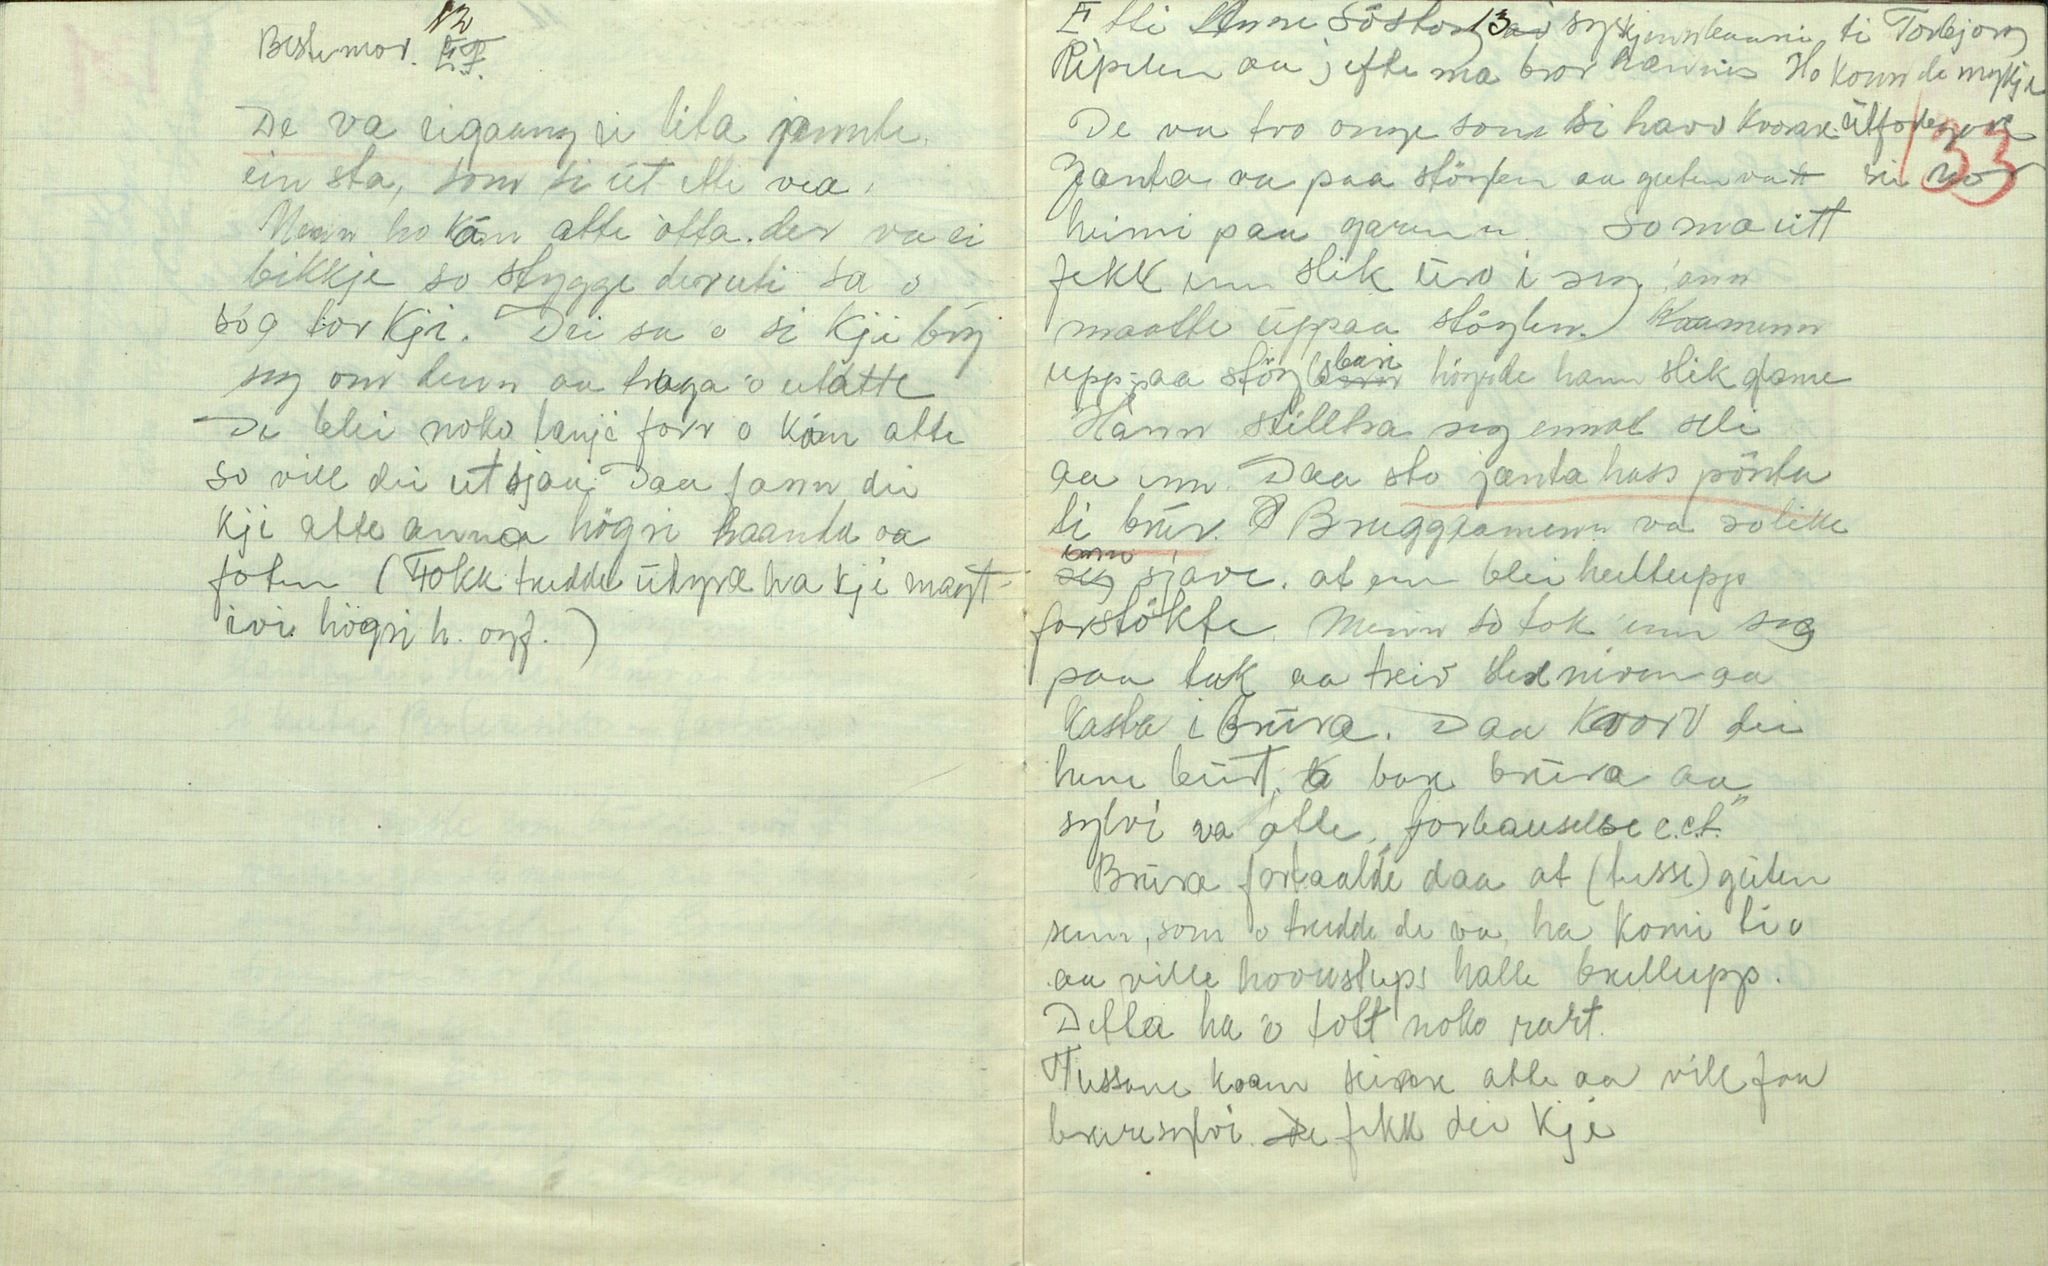 12
Bestemor. E.F.
De va eigaang ei lita jennte,
ein sta, som si ut ette vea.
Menn ho kåm atte otta. der va ei
bikkje so stygge deruti sa o
sóg tor kji. Dei sa o si kji bry
seg om denn aa traga o utatte
De blei noko lanje forr o kåm atte
so vill dei ut sjaa. Daa fann dei
kji atte anna högri haanda oa
foten (Folk trudde ühyra ha kji magt
ivi högri h. og f.)
Etti Anne Söstog 13 syskjennbaani ti Torbjorg
Ripelen aa jefte ma bror hannis Ho kounn de mykje
De va tvo onge som si havv kvorare
133
Janta va paa stöylen aa guten vatt
heimi paa garenn. So ma eitt
fekk enn slik üro i seg, enn
maatte üppaa stöylen. Kaamenn
upp paa stöylsbari höyrde hann slik glame
Hann stillte seg ennat seli
aa inn. Daa sto janta hass pönta
ti brür. Bruggaamenn va so like
enn sjave. at enn blei heiltupp
forstökte. Menn so tok enn seg
paa tak aa treiv tedniven aa
kasta i Brüra. Daa kvarv dei
hene burt, o bare brüra aa
sylvi va atte, forbauselse e.c.t."
Brüra fortaalde daa at (tusse) guten
senn, som o trudde de va, ha komi ti o
aa ville hovustups halle brullupp.
Detta ha o tott noko rart.
Tussane kaam seinare atte aa vill faa
bruresylvi. De fekk dei kji